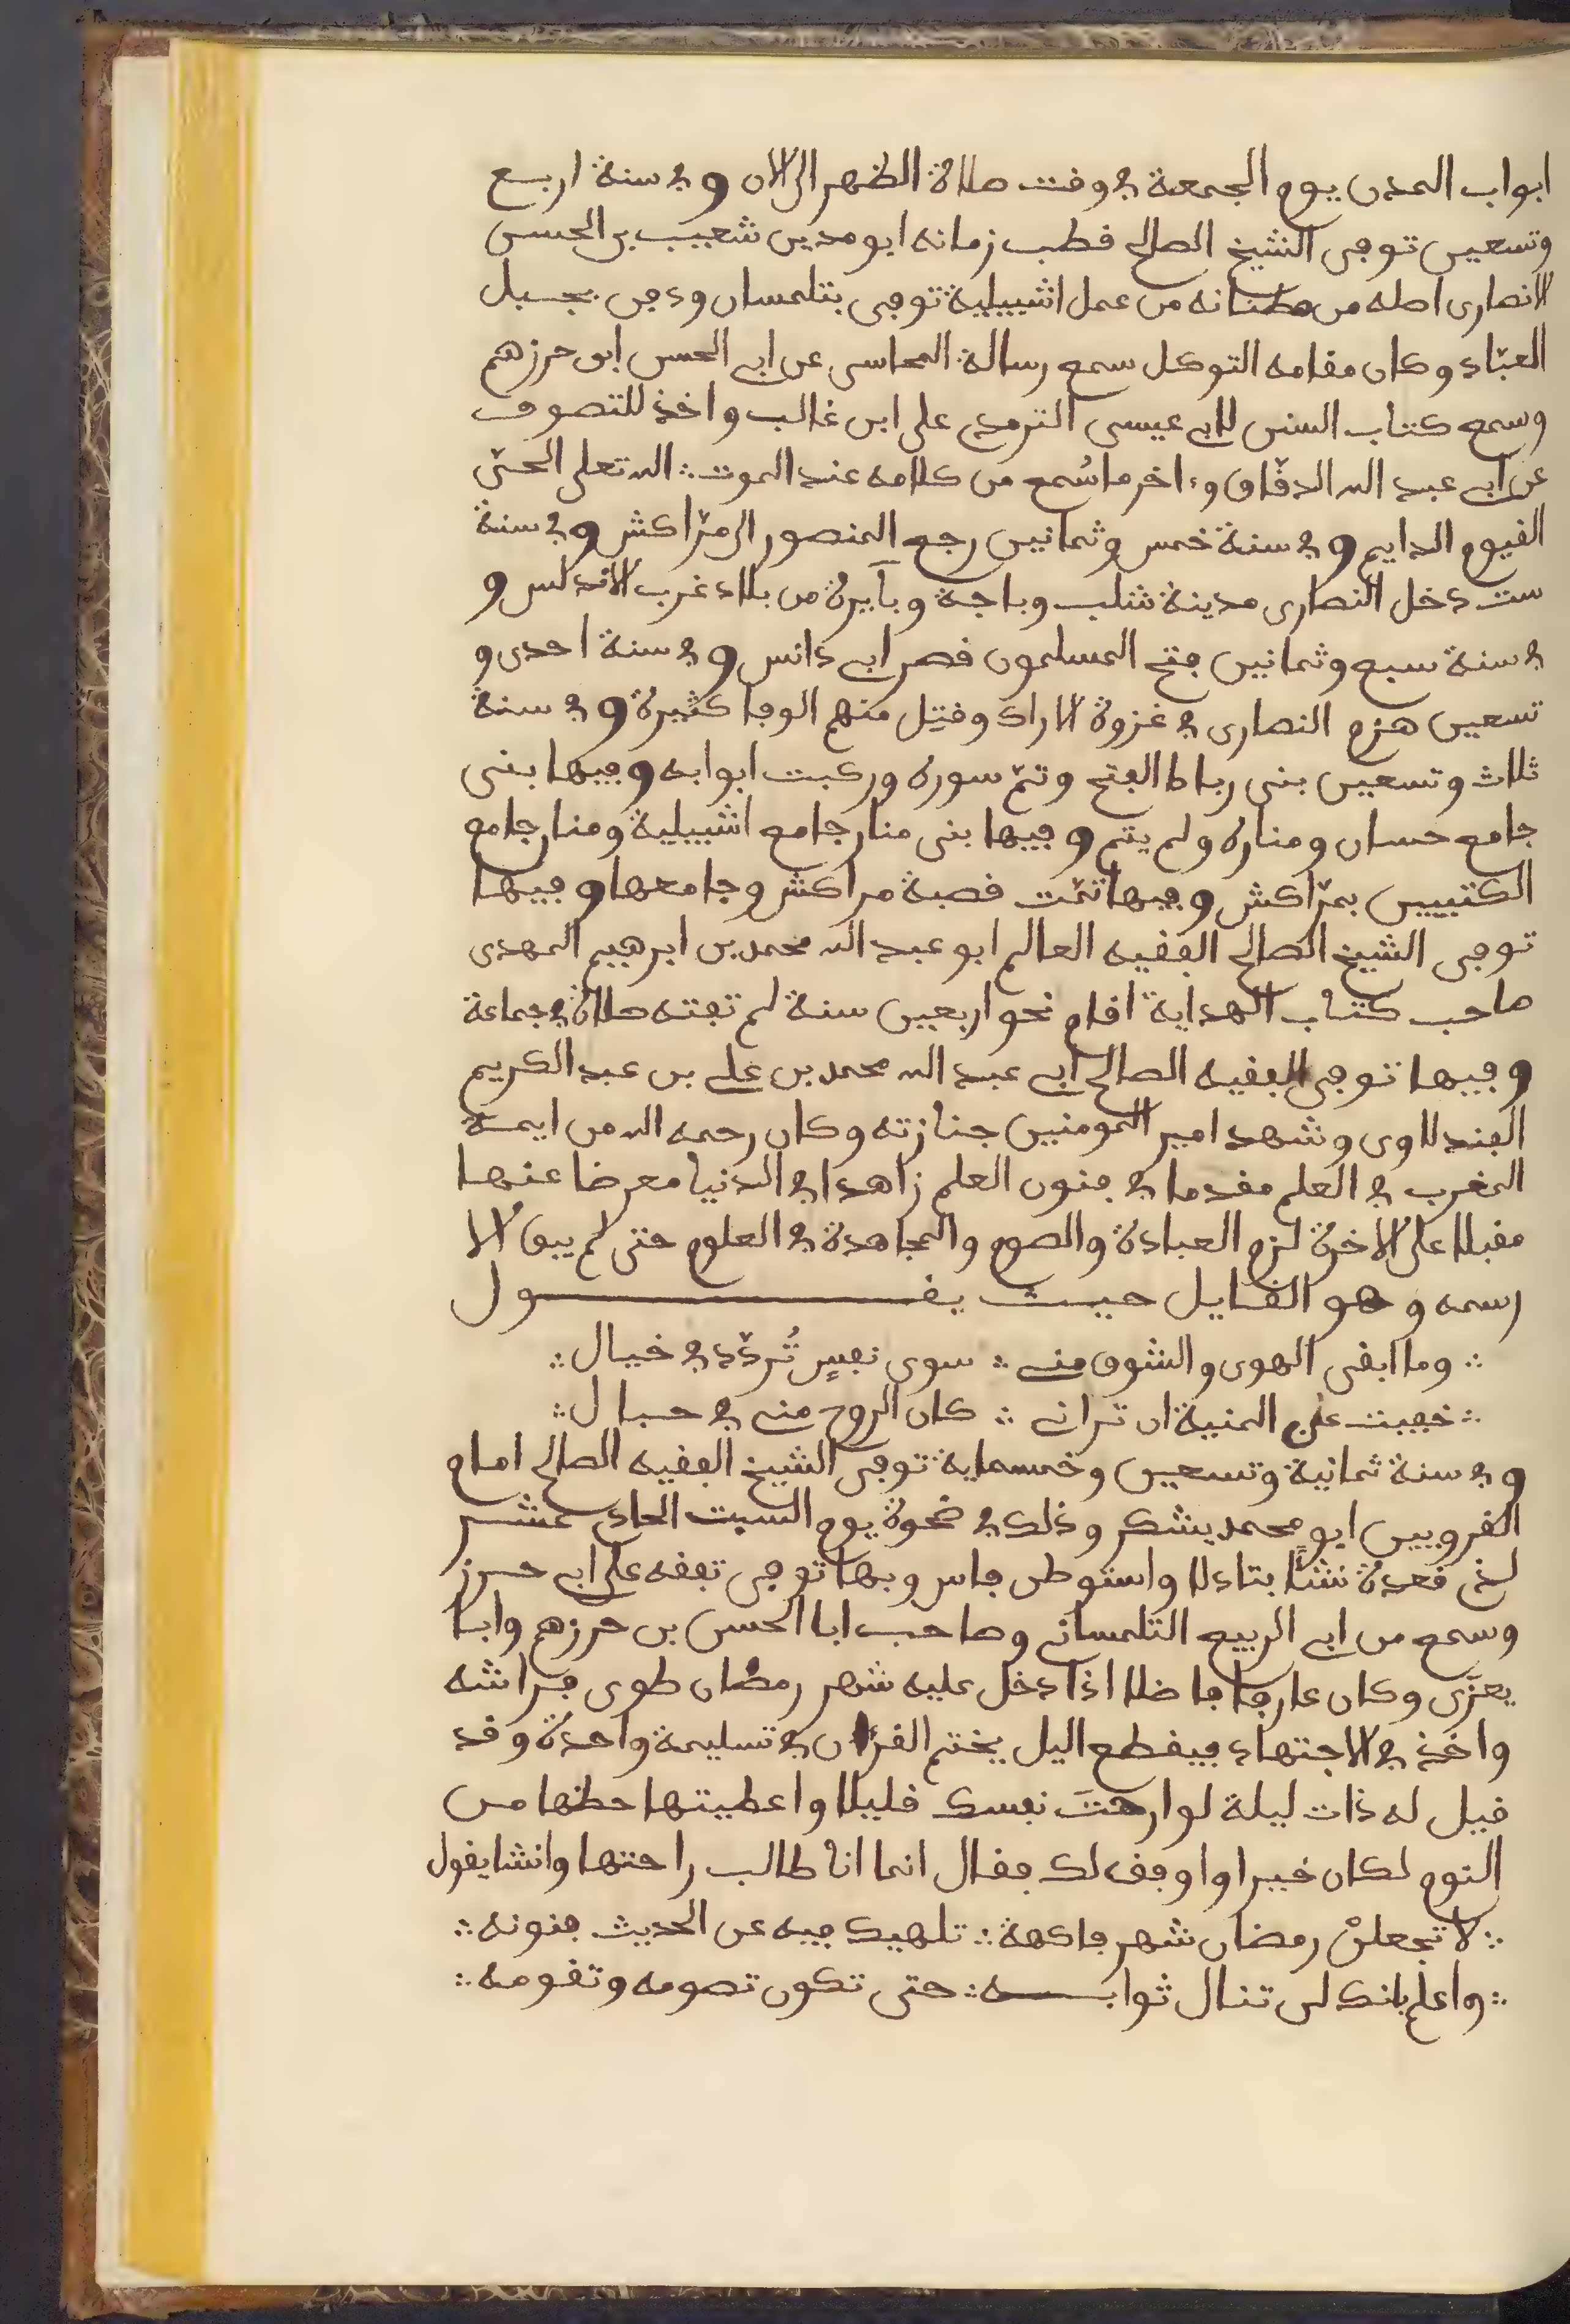 ابواب المدن يوم الجمعة في وقت صلاة الظهر الى الان وفي سنة اربع
وتسعين توفى الشيخ الصالح قطب زمانه ابو مدين شعيب بن الحسن
الانصارى اصله من مطنانه من عمل اشبيلية توفى بتلمسان ودفن بجبل
العبّاد وكان مقامه التوكل سمع رسالة المحاسى عن ابي الحسن ابن حرزهم
وسمع كتاب السنن لابي عيسى الترمدى على ابن غالب واخذ للتصوف
عن ابي عبد الله الدقّاق وءاخر ما سُمع من كلامه عند الموت ∴ الله تعلى الحىّ
القيوم الدايم وفي سنة خمس وثمانين رجع المنصور الى مرّاكش وفي سنة
ست دخل النصارى مدينة شلب وباجة ويابرة من بلاد غرب الاندلس و
في سنة سبع وثمانين فتح المسلمون قصر ابي دانس وفي سنة احدى و
تسعين هزم النصارى في غزوة الاراك وقتِل منهم الوفا كثيرة وفي سنة
ثلاث وتسعين بنى رباط الفتح وتمّ سوره وركبت ابوابه وفيها بنى
جامع حسان ومناره ولم يتم وفيها بنى منار جامع اشبيلية ومنار جامع
الكتبيين بمرّاكش وفيها تمّت قصبة مراكش وجامعها وفيها
توفى الشيخ الصالح الفقيه العالم ابو عبد الله محمد بن ابرهيم المهدى
صاحب كتاب الهداية اقام نحو اربعين سنة لم تفته صلاة في جماعة
وفيها توفى الفقيه الصالح ابي عبد الله محمد بن علي بن عبد الكريم
الفندلاوى وشهد امير المومنين جنازته وكان رحمه الله من ايمة
المغرب في العلم مقدما في فنون العلم زاهدا في الدنيا معرضا عنها
مقبلا على الاخرة لزم العبادة والصوم والمجاهدة في العلوم حتى لم يبق الا
رسمه وهو القايل حيث يقول
∴ وما ابقى الهوى والشوق مني ∴ سوى نفسٍ تُردّد في خيال ∴
∴ خفيت على المنية ان تراني ∴ كان الروح مني في حبال ∴
وفي سنة ثمانية وتسعين وخمسماية توفى الشيخ الفقيه الصالح امام
القرويين ابو محمد يشكر وذلك في ضحوة يوم السبت الحادى عشر
لذى قعدة نشئاً بتادلا واستوطن فاس وبها توفى تفقه على ابي حرز
وسمع من ابي الربيع التلمساني وصاحب ابا الحسن بن حرزهم وابا
يعزّى وكان عارفا فاضلا اذا دخل عليه شهر رمضان طوى فراشه
واخذ في الاجتهاد فيقطع اليل يختم القرءان في تسليمة واحدة وقد
قيل له ذات ليلة لو ارحتَ نفسك قليلا واعطيتها حظها من
النوم لكان خيرا واوفق لك فقال انما انا طالب راحتها وانشا يقول
∴ لا تجعلنْ رمضان شهر فاكهة ∴ تلهيك فيه عن الحديث فنونه ∴
∴ واعلم بانك لن تنال ثوابه ∴ حتى تكون تصومه وتقومه ∴